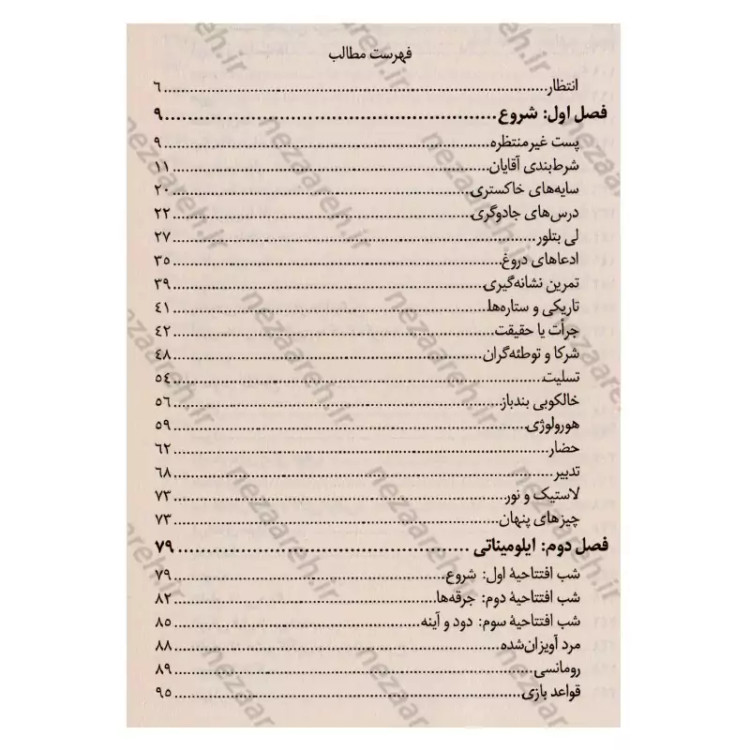 فهرست مطالب
انتظار ................ ۶
فصل اول: شروع ................ ۹
پست غیرمنتظره ................ ۹
شرط‌بندی آقایان ................ ۱۱
سایه‌های خاکستری ................ ۲۰
درس‌های جادوگری ................ ۲۲
لی بتلور ................ ۲۷
ادعاهای دروغ ................ ۳۵
تمرین نشانه‌گیری ................ ۳۹
تاریکی و ستاره‌ها ................ ۴۱
جرأت یا حقیقت ................ ۴۲
شرکا و توطئه‌گران ................ ۴۸
تسلیت ................ ۵۴
خالکوبی بندباز ................ ۵۶
هورولوژی ................ ۵۹
حضار ................ ۶۲
تدبیر ................ ۶۸
لاستیک و نور ................ ۷۳
چیزهای پنهان ................ ۷۳
فصل دوم: ایلومیناتی ................ ۷۹
شب افتتاحیهٔ اول: شروع ................ ۷۹
شب افتتاحیهٔ دوم: جرقه‌ها ................ ۸۲
شب افتتاحیهٔ سوم: دود و آینه ................ ۸۵
مرد آویزان‌شده ................ ۸۸
رومانسی ................ ۸۹
قواعد بازی ................ ۹۵
nezaareh.ir